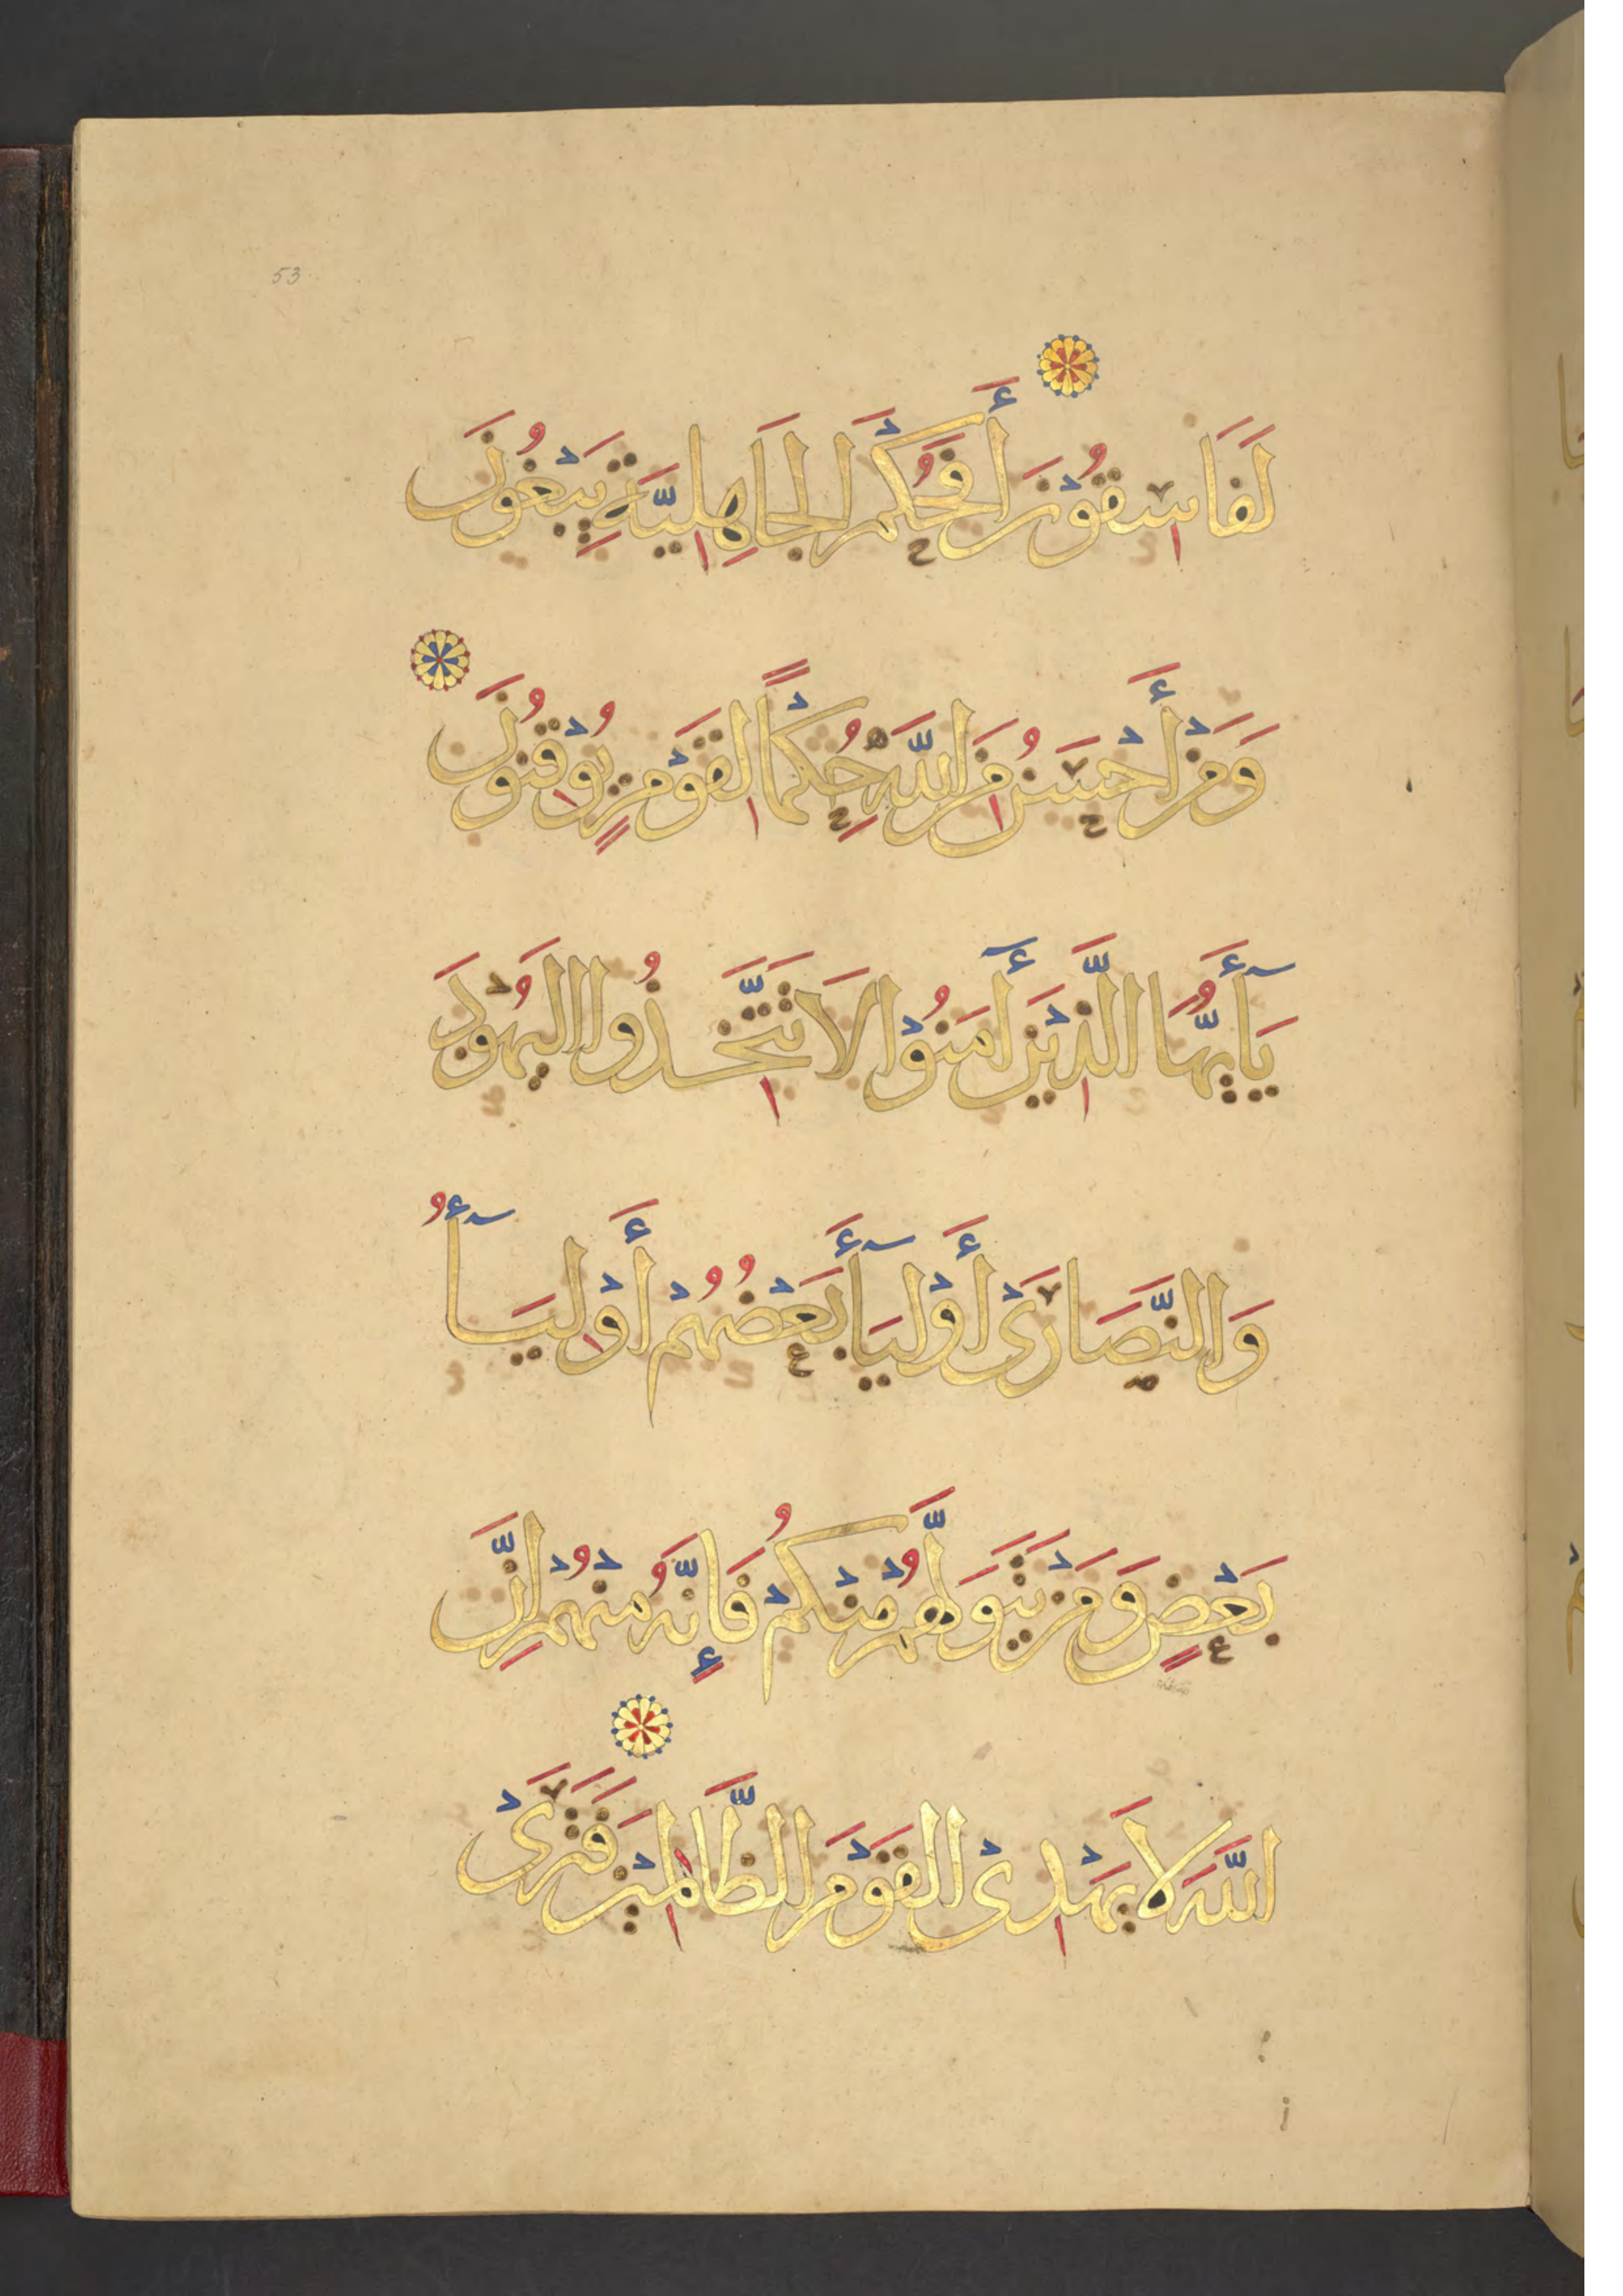 53
لَفَاسِقُوْنَ أَفَحُكْمَ الْجَاهِلِيَّةِ يَبْغُوْنَ
وَمَنْ أَحْسَنُ مِنَ اللَّهِ حُكْمًا لِقَوْمٍ يُوْقِنُوْنَ
يَأَيُّهَا الَّذِيْنَ أَمَنُوْا لَا تَتَّخِذُوا الْيَهُوْدَ
وَالنَّصَارَىْ أَوْلِيَأَ بَعْضُهُمْ أَوْلِيَأُ
بَعْضٍ وَمَنْ يَتَوَلَّهُمْ مِنْكُمْ فَإِنَّهُ مِنْهُمْ اِنَّ
اللَّهَ لَا يَهْدِىْ الْقَوْمَ الظَّالِمِيْنَ فَتَرَىْ